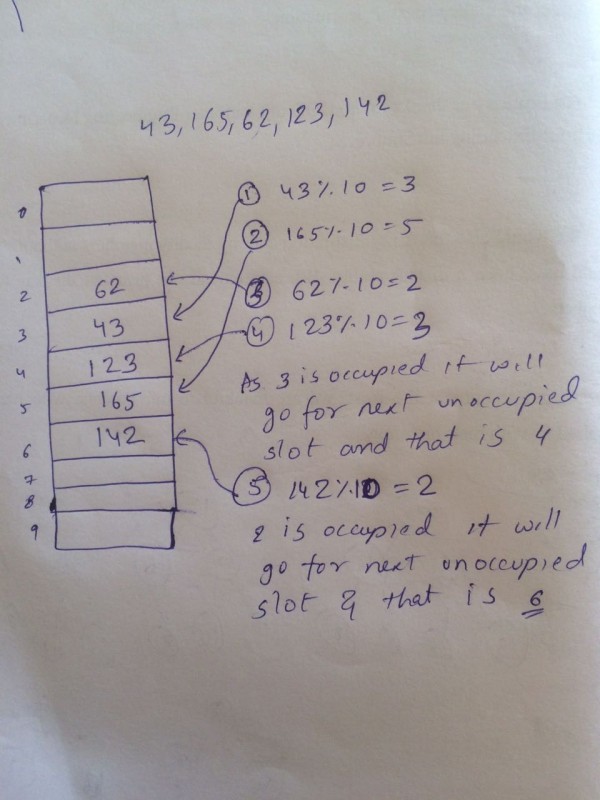 43, 165, 62, 123, 142
0
1
2 62
3 43
4 123
5 165
6 142
7
8
9
① 43%10 = 3
② 165%10 = 5
③ 62%10 = 2
④ 123%10 = 3
As 3 is occupied it will
go for next unoccupied
slot and that is 4
⑤ 142%10 = 2
2 is occupied it will
go for next unoccupied
slot & that is 6